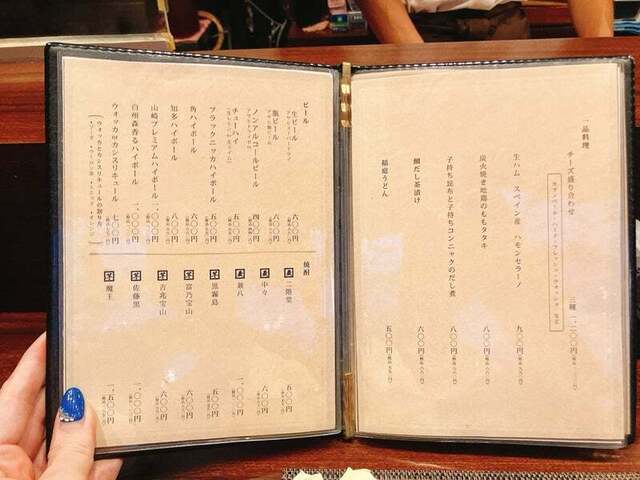 一品料理
チーズ盛り合わせ 三種 一、二〇〇円
生ハム スペイン産 ハモンセラーノ 九〇〇円
炭火焼き地鶏のももタタキ 八〇〇円
子持ち昆布と子持ちコンニャクのだし煮 六〇〇円
鯛だし茶漬け 六〇〇円
稲庭うどん 五〇〇円
ビール
生ビール 六〇〇円
瓶ビール 六〇〇円
ノンアルコールビール 四〇〇円
チューハイ 五〇〇円
ブラックニッカハイボール 五〇〇円
角ハイボール 六〇〇円
知多ハイボール 八〇〇円
山崎プレミアムハイボール 一、〇〇〇円
白州森香るハイボール 一、〇〇〇円
ウオッカorカシスリキュール 七〇〇円
ウオッカとカシスリキュールの割り方
焼酎
麦 二階堂 五〇〇円
麦 中々 六〇〇円
麦 兼八 一、〇〇〇円
芋 黒霧島 五〇〇円
芋 富乃宝山 六〇〇円
芋 吉兆宝山 六〇〇円
芋 佐藤黒 一、〇〇〇円
芋 魔王 一、五〇〇円